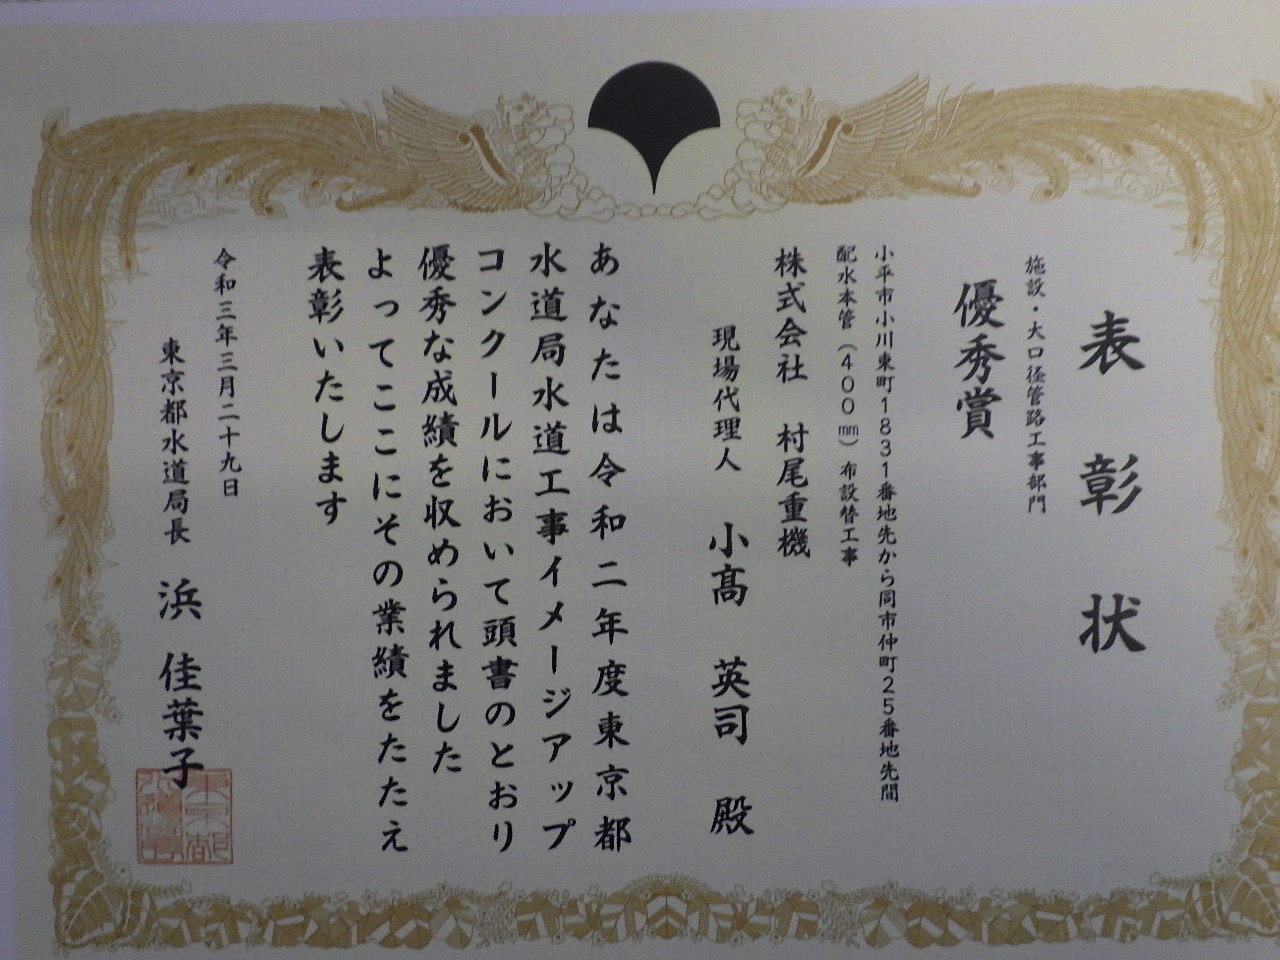 表彰状
施設・大口径管路工事部門
優秀賞
小平市小川東町1831番地先から同市仲町25番地先間
配水本管（400㎜）布設替工事
株式会社 村尾重機
現場代理人 小髙 英司 殿
あなたは令和二年度東京都
水道局水道工事イメージアップ
コンクールにおいて頭書のとおり
優秀な成績を収められました
よってここにその業績をたたえ
表彰いたします
令和三年三月二十九日
東京都水道局長 浜 佳葉子